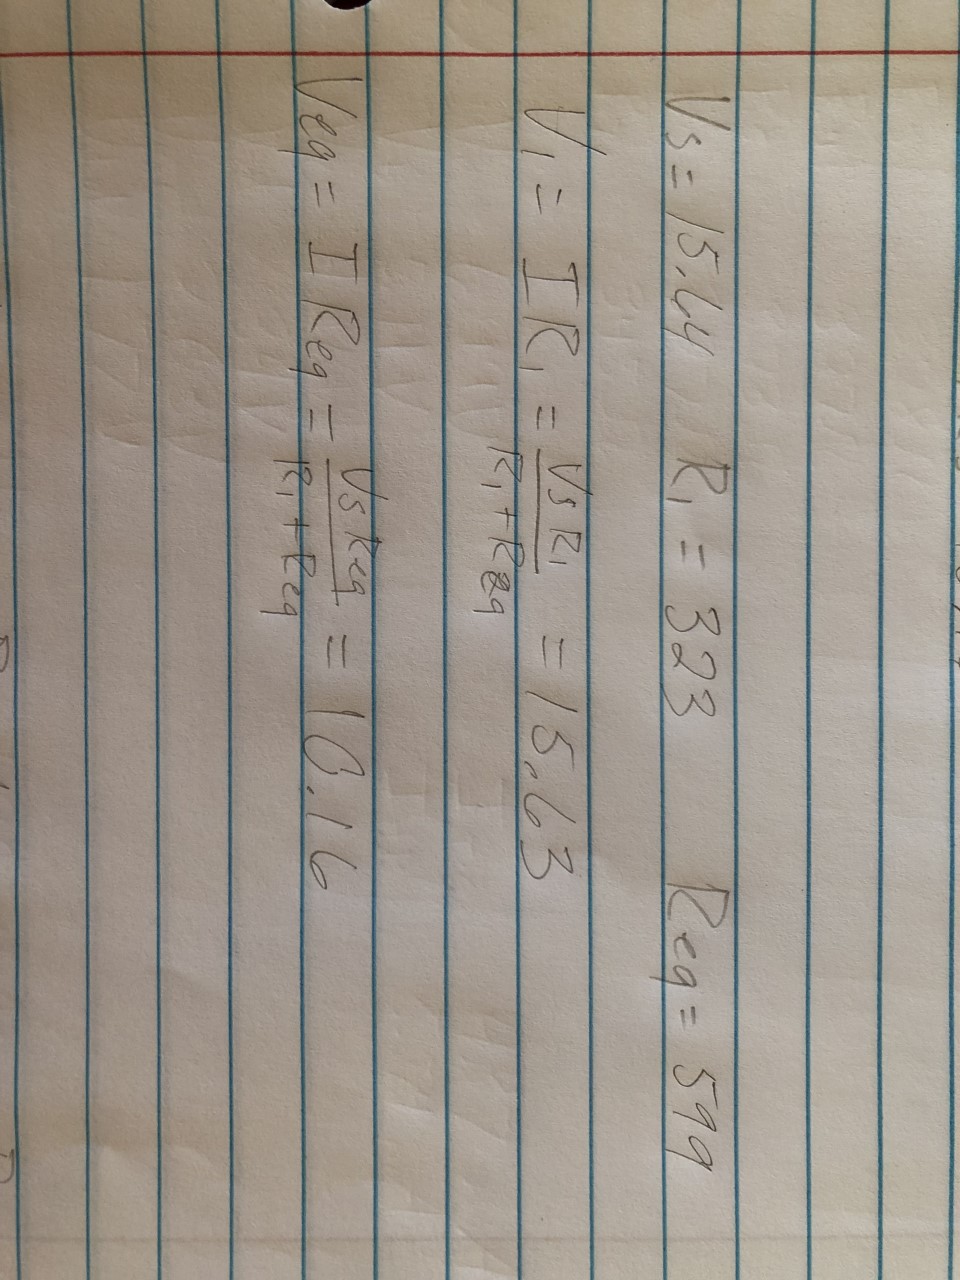 Vs = 15.64 R₁ = 323 Req = 599
V₁ = IR₁ = VsR₁ / R₁+Req = 15.63
Veq = IReq = VsReq / R₁+Req = 10.16